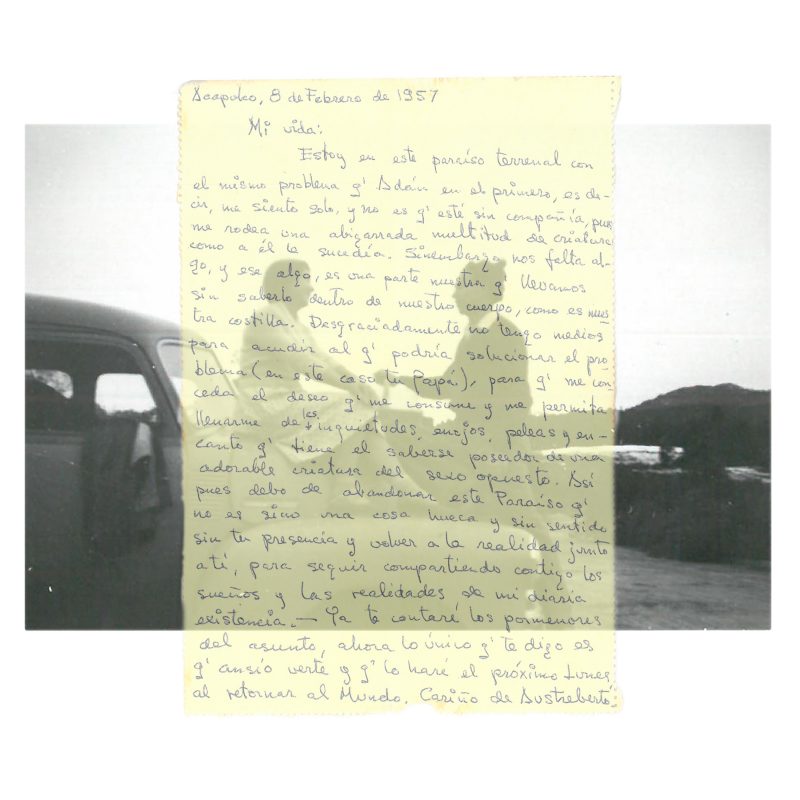 Acapulco, 8 de Febrero de 1957
Mi vida:
Estoy en este paraíso terrenal con
el mismo problema q' Adán en el primero, es de-
cir, me siento solo, y no es q' esté sin compañía, pues
me rodea una abigarrada multitud de criaturas
como a él le sucedía. Sinembargo nos falta al-
go, y ese algo, es una parte nuestra q' llevamos
sin saberlo dentro de nuestro cuerpo, como es nues
tra costilla. Desgraciadamente no tengo medios
para acudir al q' podría solucionar el pro-
blema (en este caso tu Papá), para q' me con-
ceda el deseo q' me consume y me permita
llenarme de las inquietudes, enojos, peleas y en-
canto q' tiene el saberse poseedor de una
adorable criatura del sexo opuesto. Así
pues debo de abandonar este Paraíso q'
no es sino una cosa hueca y sin sentido
sin tu presencia y volver a la realidad junto
a tí, para seguir compartiendo contigo los
sueños y las realidades de mi diaria
existencia. — Ya te contaré los pormenores
del asunto, ahora lo único q' te digo es
q' ansío verte y q' lo haré el próximo Lunes
al retornar al Mundo. Cariño de Austreberto